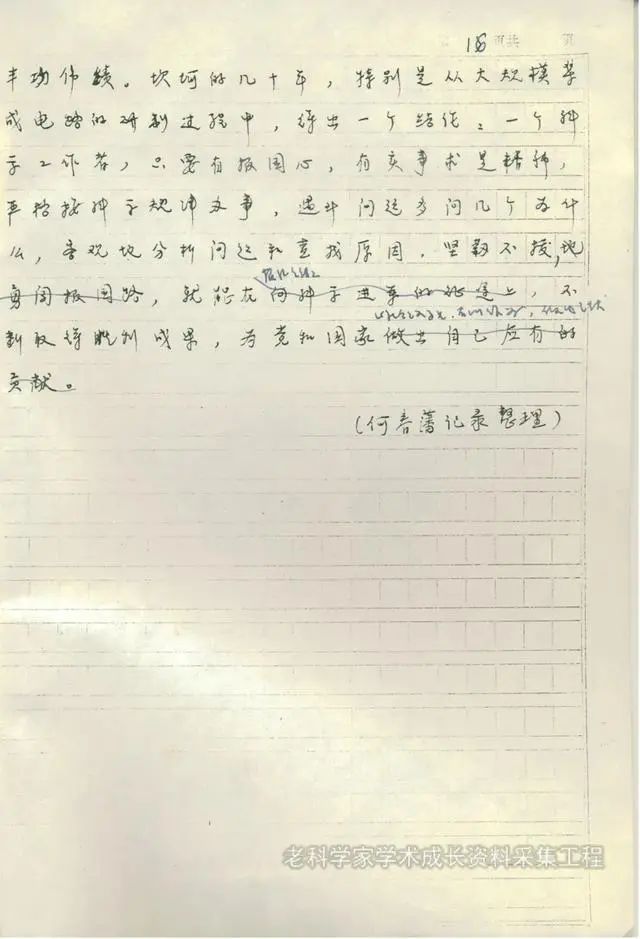 18 页共 页
丰功伟绩。坎坷的几十年，特别是从大规模集
成电路的研制过程中，得出一个结论：一个科
学工作者，只要有报国心，有实事求是精神，
严格按科学规律办事，遇到问题多问几个为什
么，客观地分析问题和查找原因，坚韧不拔，地
勇闯报国路，就能在向科学进军的征途上，不
断取得胜利成果，为党和国家做出自己应有的
贡献。
(何春藩记录整理)
老科学家学术成长资料采集工程